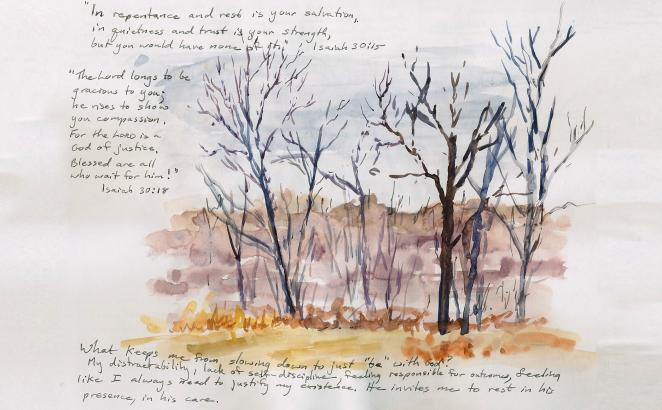 "In repentance and rest is your salvation,
in quietness and trust is your strength,
but you would have none of it." Isaiah 30:15
"The Lord longs to be
gracious to you;
he rises to show
you compassion.
For the LORD is a
God of justice.
Blessed are all
who wait for him!"
Isaiah 30:18
What keeps me from slowing down to just "be" with God?
My distractability, lack of self-discipline, feeling responsible for outcome, feeling
like I always need to justify my existence. He invites me to rest in his
presence, in his care.